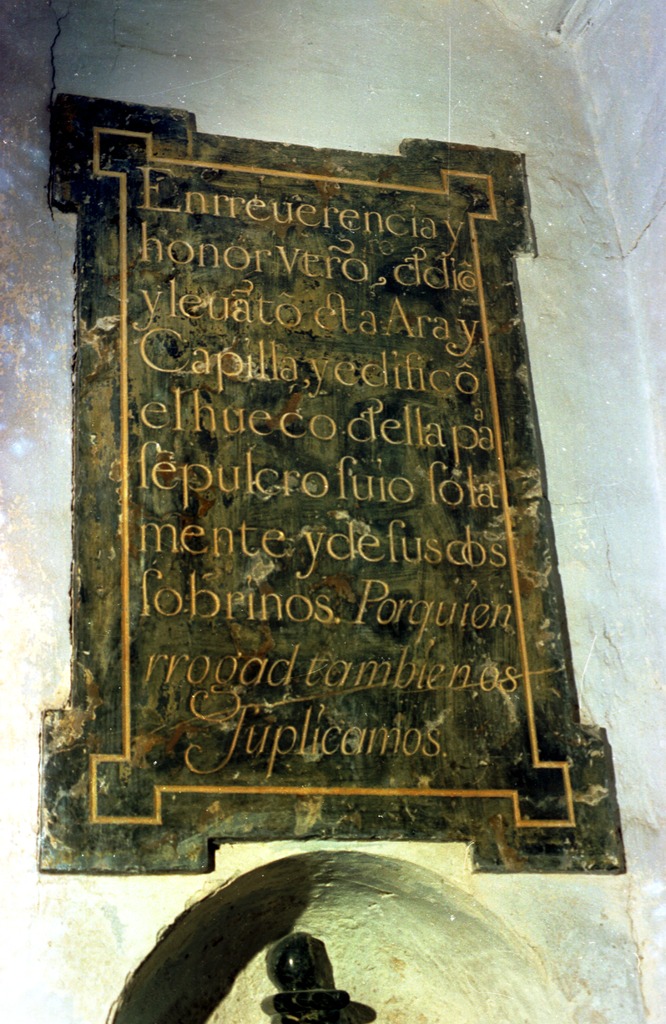 En rreuerencia y
honor vr̃o, dedicó
y leuãtó esta Ara y
Capilla, y edificô
el hueco della pª
sepulcro suio sola
mente y de sus dos
sobrinos. Por quien
rrogad tambien os
suplicamos.